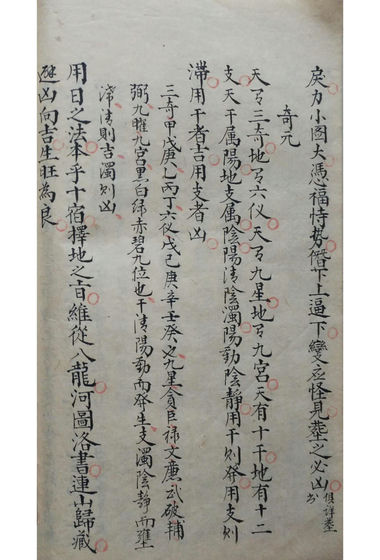 戾力小圖大憑福恃勢僭下上逼下變亡怪見葬之必凶俱詳葬
奇元
天有三奇地有六仪天有九星地有九宮天有十干地有十二
支天干属陽地支属陰陽清陰濁陽動陰静用干則發用支則
滞用干者吉用支者凶
三奇甲戊庚乙丙丁六仪戊己庚辛壬癸也九星貪巨禄文廉武破輔
弼九曜九宮黒白緑赤碧九位也干清陽動而發生支濁陰静而壅
滞清則吉濁則凶
用日之法本乎十宿擇地之言維從八龍河圖洛書連山歸藏
避凶向吉生旺為良